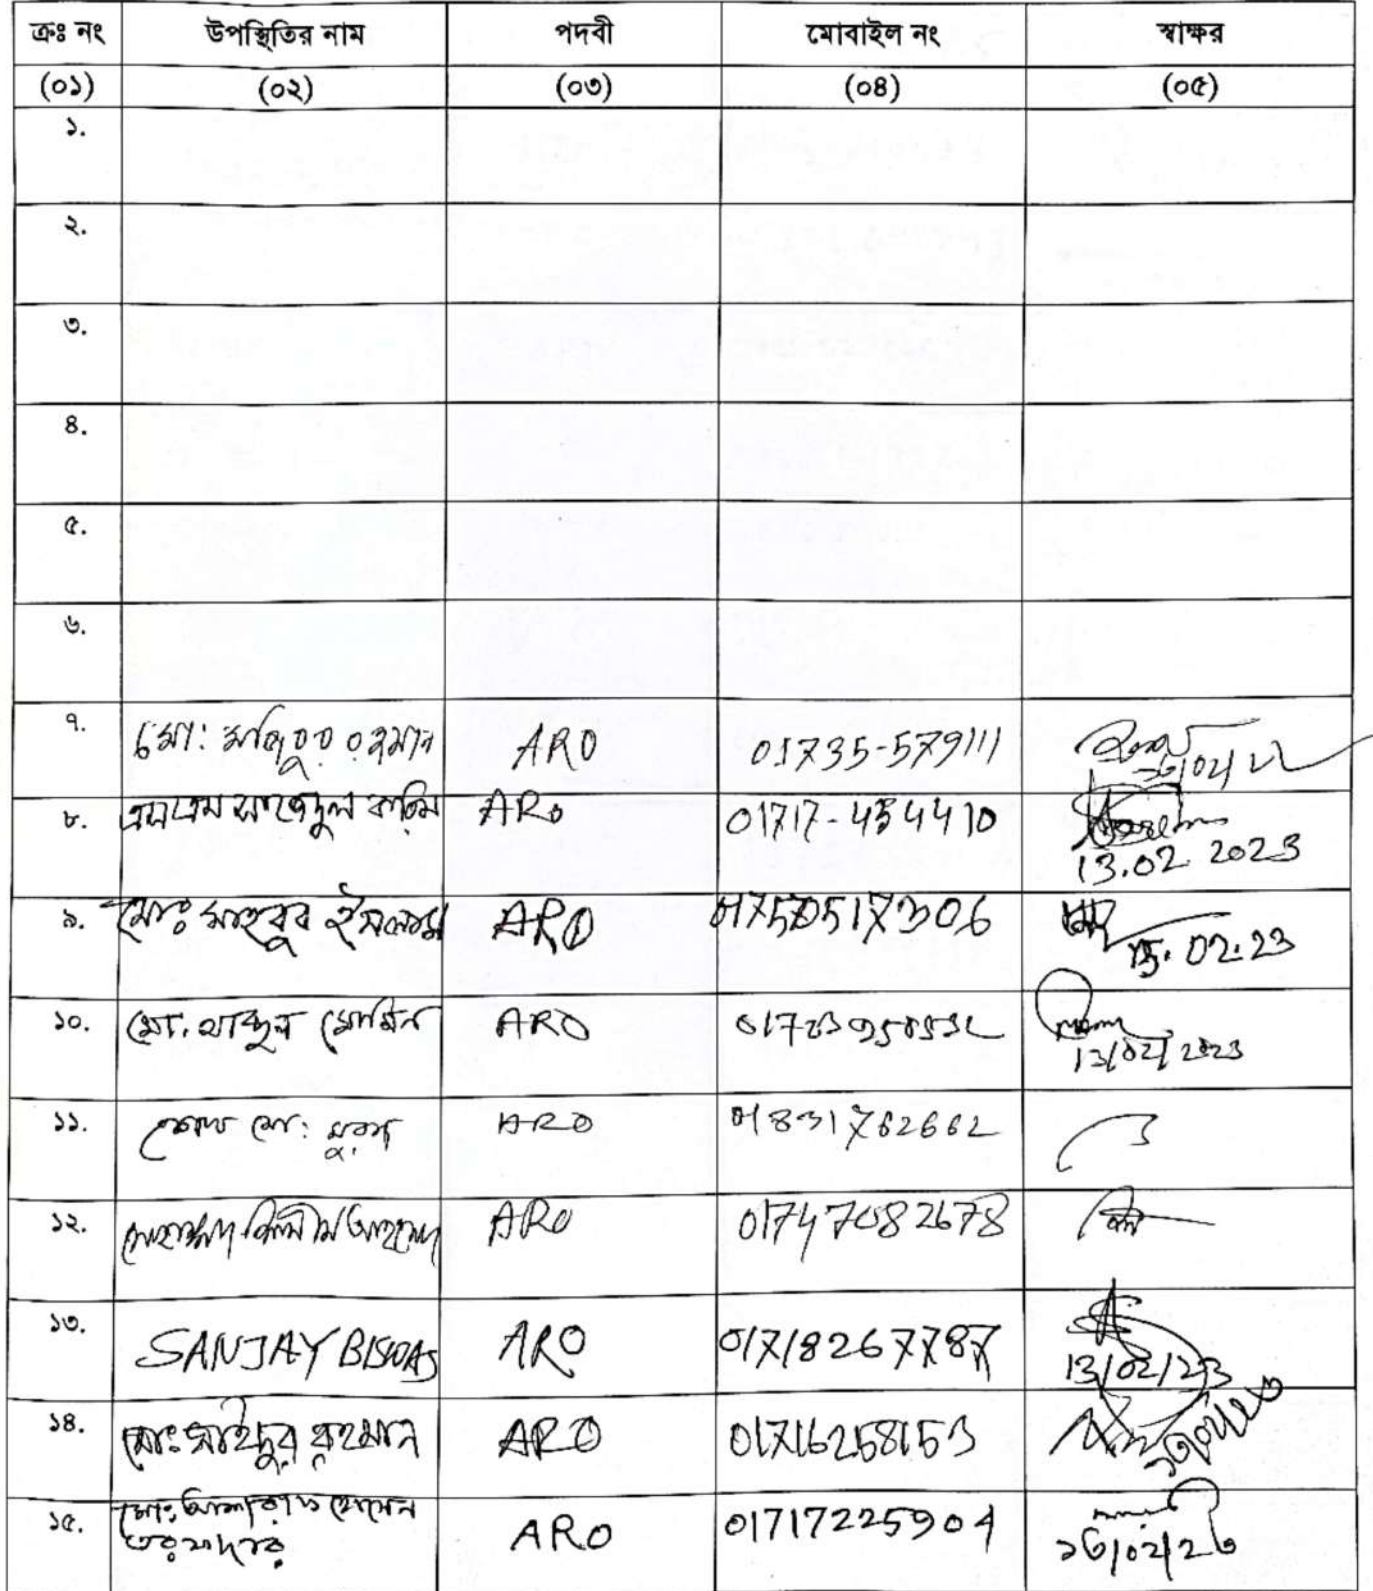 ক্রঃ নং উপস্থিতির নাম পদবী মোবাইল নং স্বাক্ষর
(০১) (০২) (০৩) (০৪) (০৫)
১.
২.
৩.
৪.
৫.
৬.
৭. মো: মজিবুর রহমান ARO 01735-579111
৮. এস এম সাজেদুল করিম ARO 01717-454410 13.02 2023
৯. মোঃ মাহবুব ইসলাম ARO 01750517306 02.23
১০. মো. আব্দুল মোমিন ARO 13/02/2023
১১. শেখ মো: ARO 01831762662
১২. আহমেদ ARO 01747082678
১৩. SANJAY BISWAS ARO 01718267787 13/02/23
১৪. মোঃ সাইদুর রহমান ARO 01716258153
১৫. মোঃ হোসেন
তরফদার ARO 01717225904 ১৩/০২/২৩